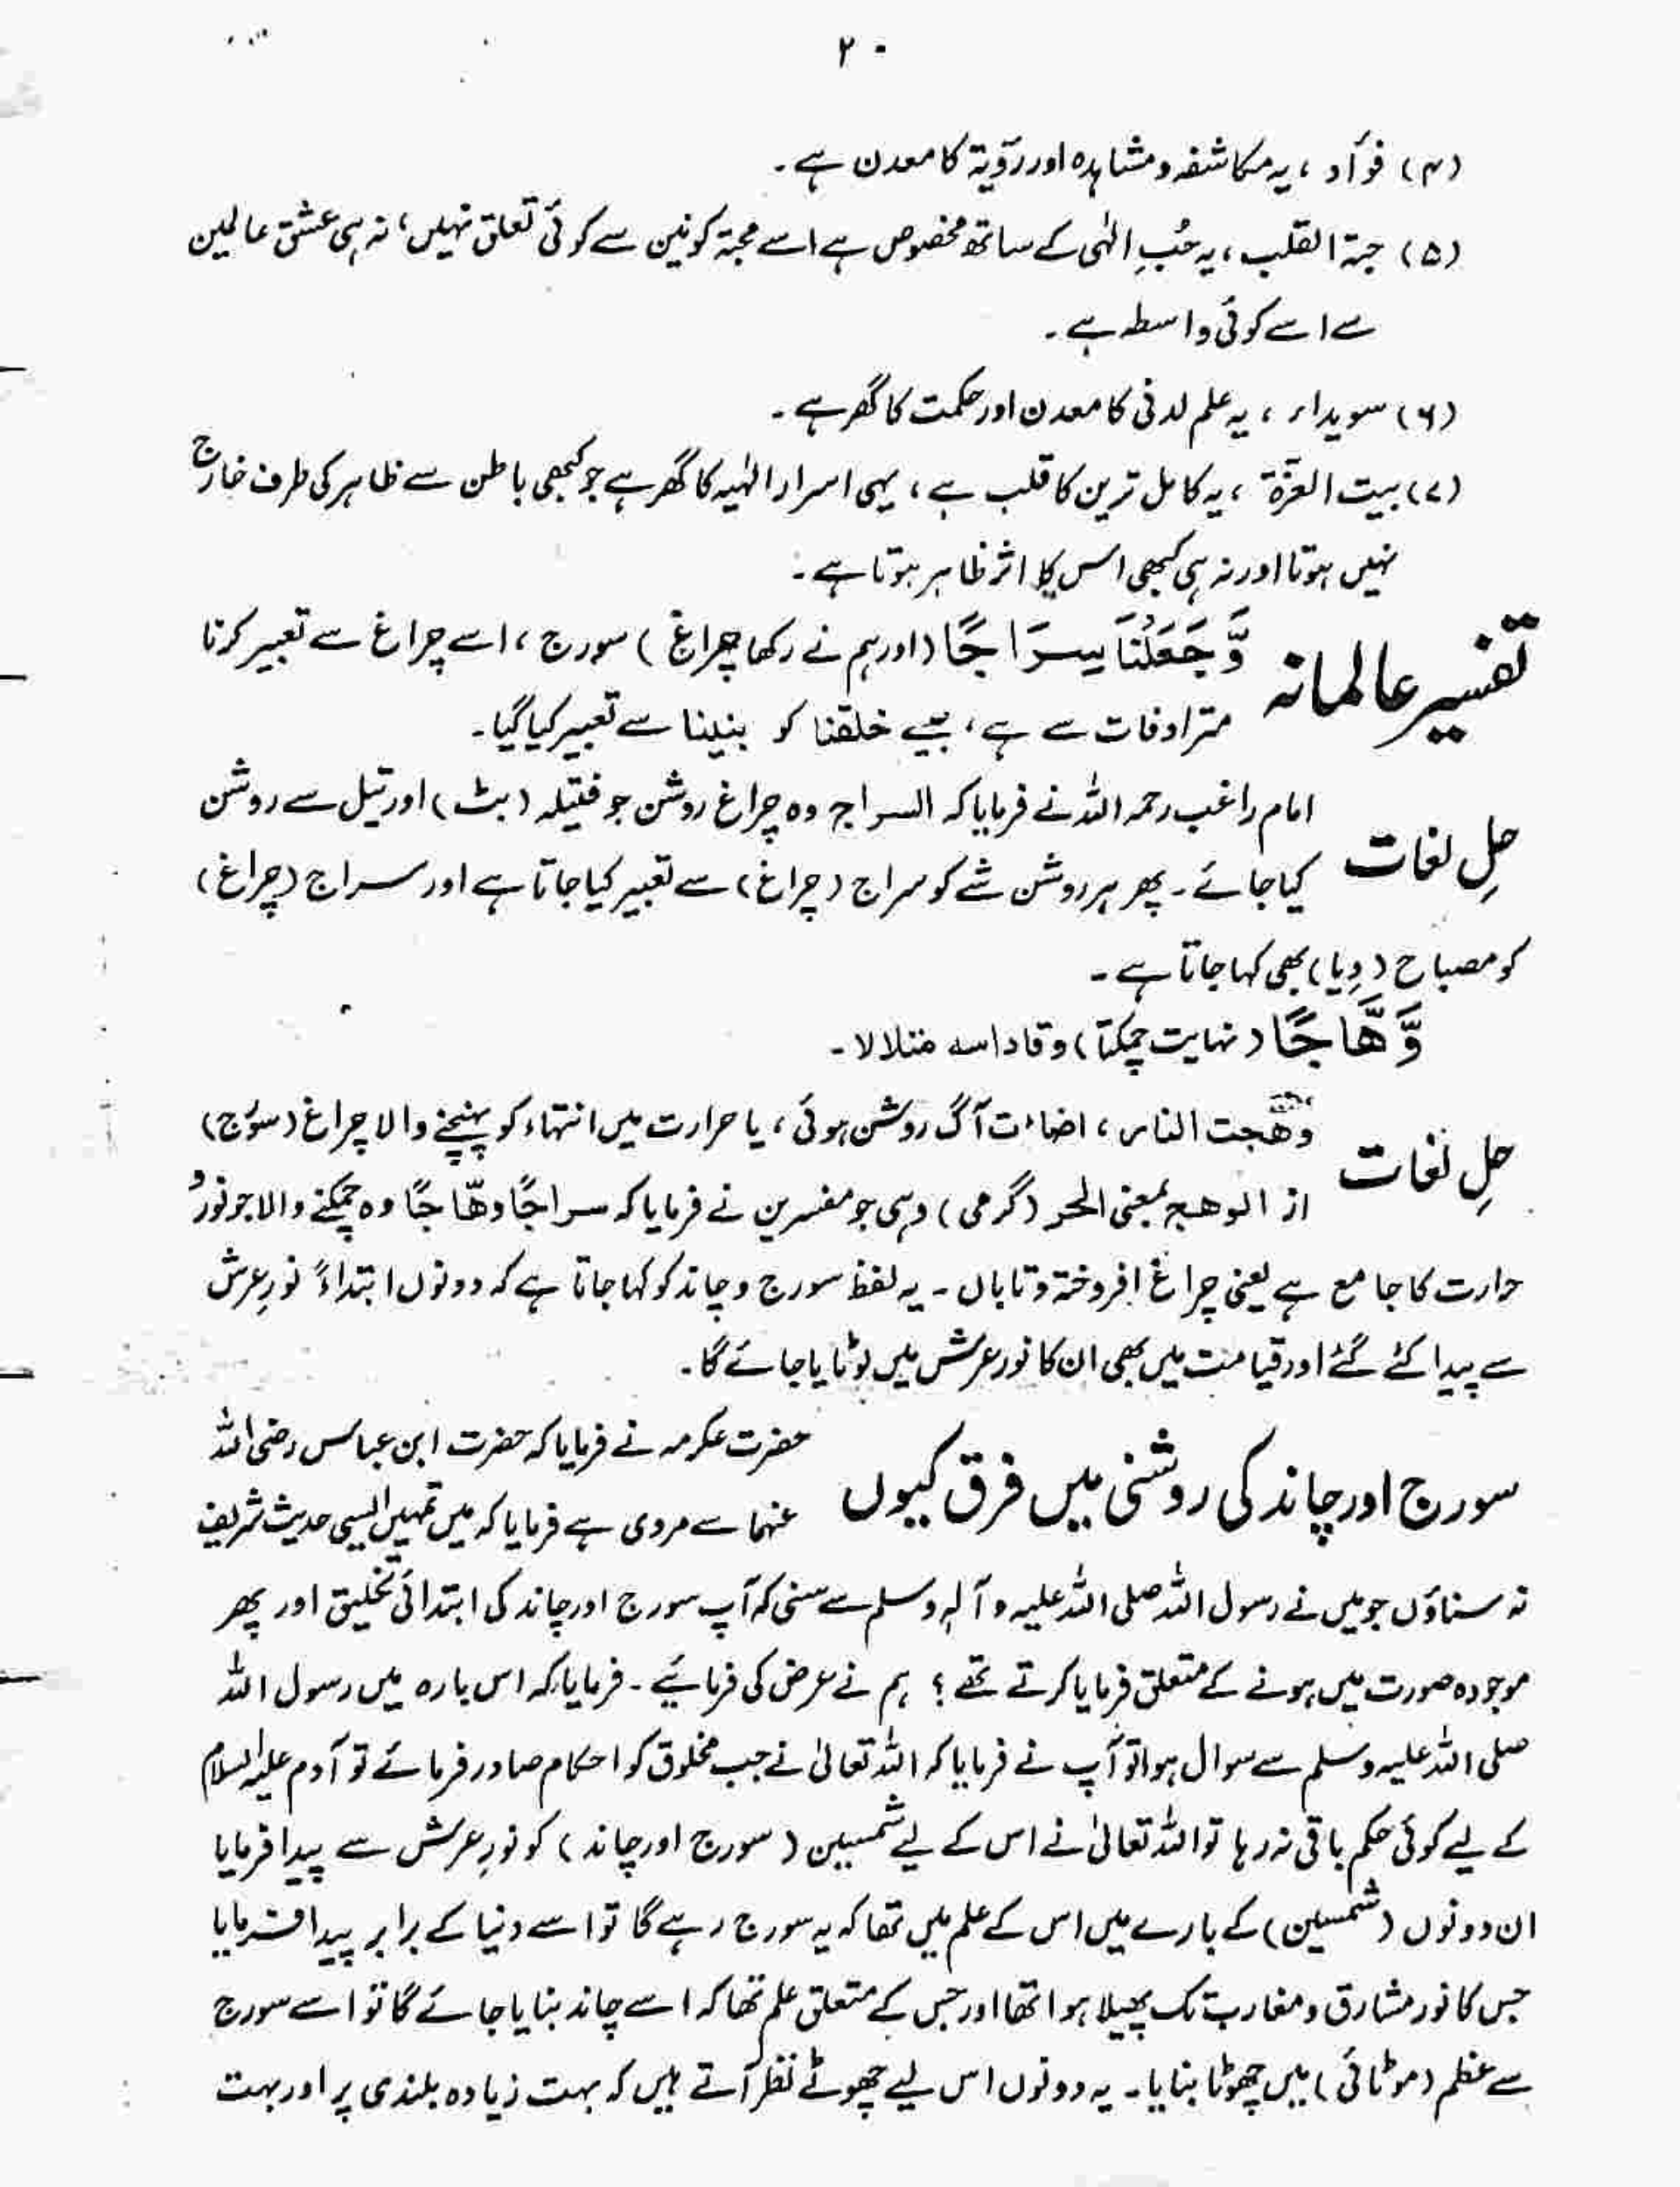 ۲۰
(۴) فوآد ، یہ مکاشفہ ومشاہدہ اور رؤیۃ کا معدن ہے ۔
(۵) حبۃ القلب ، یہ حُبِ الہٰی کے ساتھ مخصوص ہے اسے محبۃ کونین سے کوئی تعلق نہیں ، نہ ہی عشق عالمین
سے اسے کوئی واسطہ ہے ۔
(۶) سویداء ، یہ علم لدنی کا معدن اور حکمت کا گھر ہے ۔
(۷) بیت العزۃ ، یہ کامل ترین کا قلب ہے ، یہی اسرار الہٰیہ کا گھر ہے جو کبھی باطن سے ظاہر کی طرف خارج
نہیں ہوتا اور نہ ہی کبھی اس کا اثر ظاہر ہوتا ہے ۔
تفسیر عالمانہ وَّجَعَلْنَا سِرَاجًا (اور ہم نے رکھا چراغ) سورج ، اسے چراغ سے تعبیر کرنا
مترادفات سے ہے ، جیسے خلقنا کو بنینا سے تعبیر کیا گیا ۔
حلِ لغات امام راغب رحمہ اللہ نے فرمایا کہ السراج وہ چراغ روشن جو فتیلہ (بٹ) اور تیل سے روشن
کیا جائے ۔ پھر ہر روشن شے کو سراج (چراغ) سے تعبیر کیا جاتا ہے اور سراج (چراغ)
کو مصباح (دِیا) بھی کہا جاتا ہے ۔
وَّهَّاجًا (نہایت چمکتا) وقادا سه متلالا ۔
حلِ لغات وھّجت النار ، اضاءت آگ روشن ہوئی ، یا حرارت میں انتہاء کو پہنچنے والا چراغ (سورج)
از الوھج بمعنی الحر (گرمی) وہی جو مفسرین نے فرمایا کہ سراجًا وھّاجًا وہ چمکنے والا جو نور و
حرارت کا جامع ہے یعنی چراغ افروختہ وتاباں ۔ یہ لفظ سورج وچاند کو کہا جاتا ہے کہ دونوں ابتداءً نورِ عرش
سے پیدا کئے گئے اور قیامت میں بھی ان کا نور عرش میں لوٹایا جائے گا ۔
سورج اور چاند کی روشنی میں فرق کیوں حضرت عکرمہ نے فرمایا کہ حضرت ابن عباس رضی اللہ
عنہما سے مروی ہے فرمایا کہ میں تمہیں ایسی حدیث شریف
نہ سناؤں جو میں نے رسول اللہ صلی اللہ علیہ وآلہٖ وسلم سے سنی کہ آپ سورج اور چاند کی ابتدائی تخلیق اور پھر
موجودہ صورت میں ہونے کے متعلق فرمایا کرتے تھے ؟ ہم نے عرض کی فرمائیے ۔ فرمایا کہ اس بارہ میں رسول اللہ
صلی اللہ علیہ وسلم سے سوال ہوا تو آپ نے فرمایا کہ اللہ تعالیٰ نے جب مخلوق کو احکام صادر فرمائے تو آدم علیہ السلام
کے لیے کوئی حکم باقی نہ رہا تو اللہ تعالیٰ نے اس کے لیے شمسین (سورج اور چاند) کو نورِ عرش سے پیدا فرمایا
ان دونوں (شمسین) کے بارے میں اس کے علم میں تھا کہ یہ سورج رہے گا تو اسے دنیا کے برابر پیدا فرمایا
جس کا نور مشارق ومغارب تک پھیلا ہوا تھا اور جس کے متعلق علم تھا کہ اسے چاند بنایا جائے گا تو اسے سورج
سے عظم (موٹائی) میں چھوٹا بنایا ۔ یہ دونوں اس لیے چھوٹے نظر آتے ہیں کہ بہت زیادہ بلندی پر اور بہت